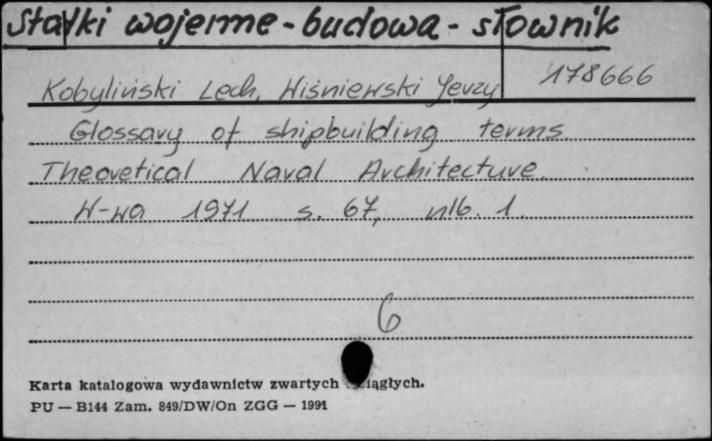 Statki wojenne - budowa - słownik
Kobyliński Lech, Wiśniewski Jerzy
178666
Glossary of shipbuilding terms
Theoretical Naval Architecture
W-wa 1971 s. 67, nlb. 1.
6
Karta katalogowa wydawnictw zwartych iągłych.
PU — B144 Zam. 849/DW/On ZGG — 1991